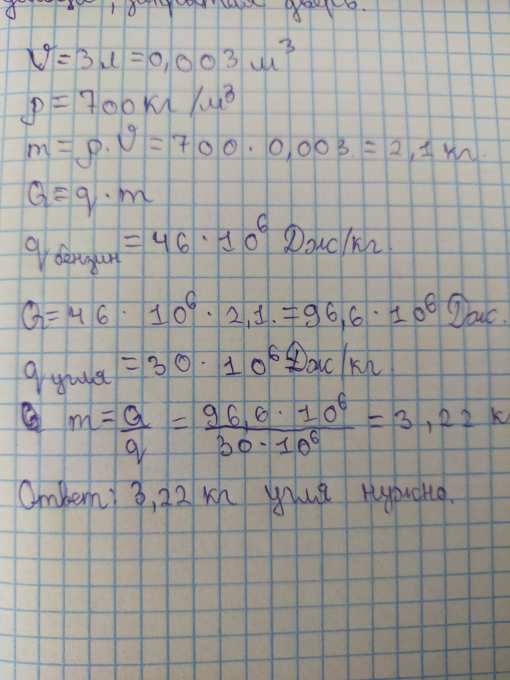 закрытая дверь.
V = 3 л = 0,003 м³
ρ = 700 кг/м³
m = ρ · V = 700 · 0,003 = 2,1 кг.
Q = q · m
q бензин = 46 · 10⁶ Дж/кг.
Q = 46 · 10⁶ · 2,1 = 96,6 · 10⁶ Дж.
q угля = 30 · 10⁶ Дж/кг.
m = Q/q = 96,6 · 10⁶ / 30 · 10⁶ = 3,22 к
Ответ: 3,22 кг угля нужно.